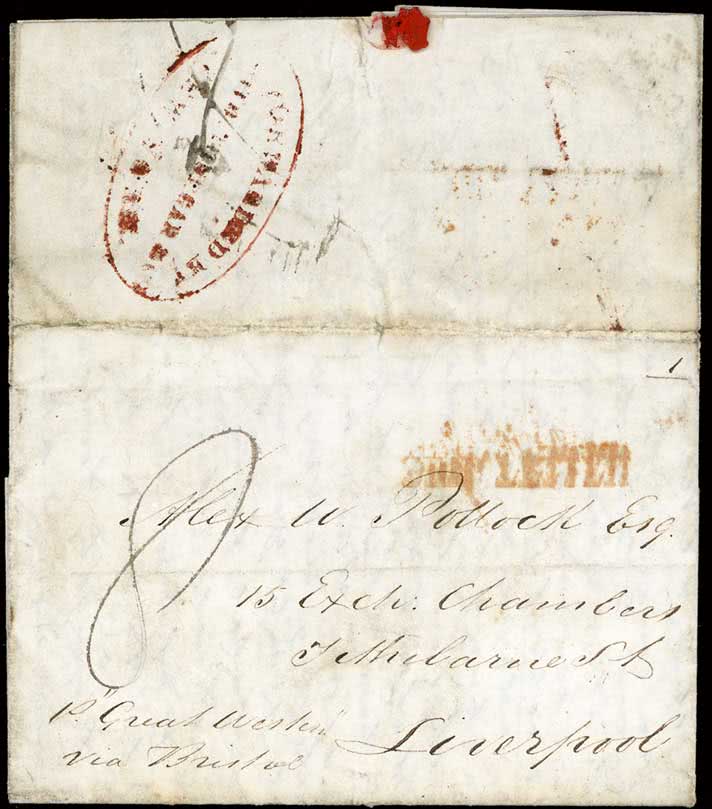 FORWARDED BY
1
SHIP LETTER
8
Alex W. Pollock Esq.
15 Exch: Chambers
Tithebarne St
Liverpool
p "Great Western"
via Bristol